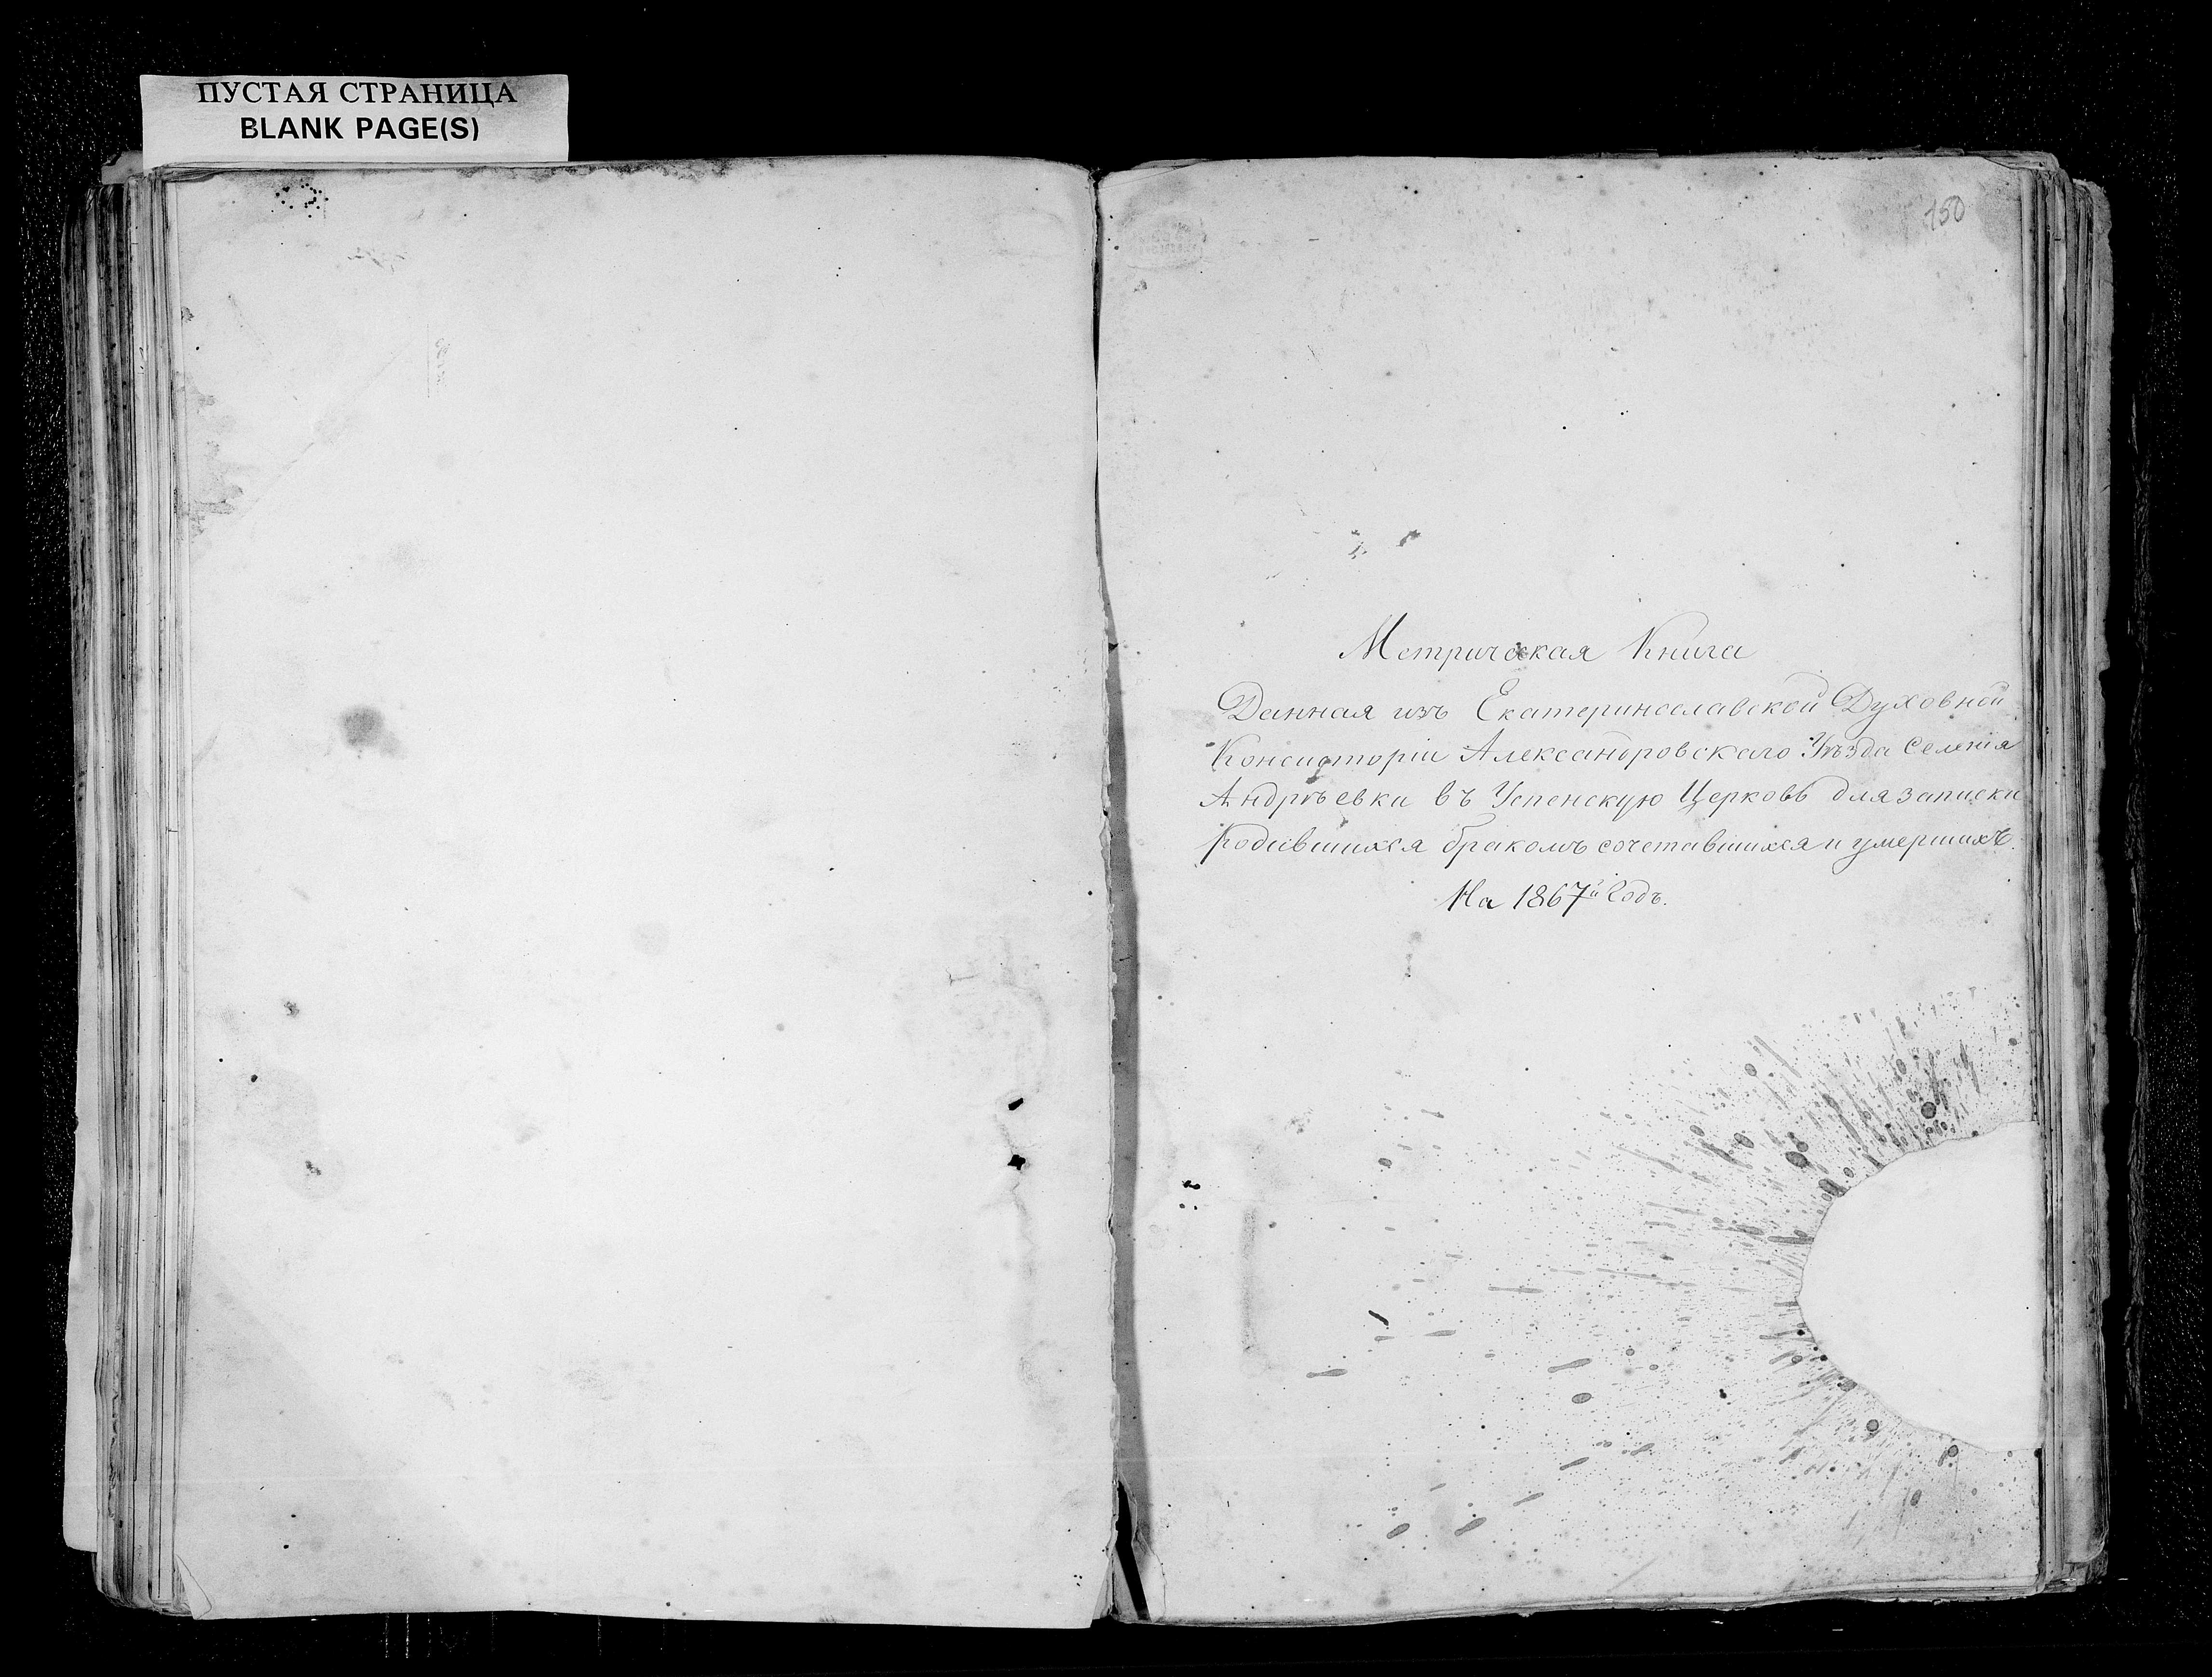 ПУСТАЯ СТРАНИЦА
BLANK PAGE(S)
150
Метрическая Книга
Данная изъ Екатеринославской Духовной
Консисторіи Александровскаго Уѣзда Селенія
Андрѣевки въ Успенскую Церковь для записки
Родившихся бракомъ сочетавшихся и умершихъ.
На 1867й Годъ.